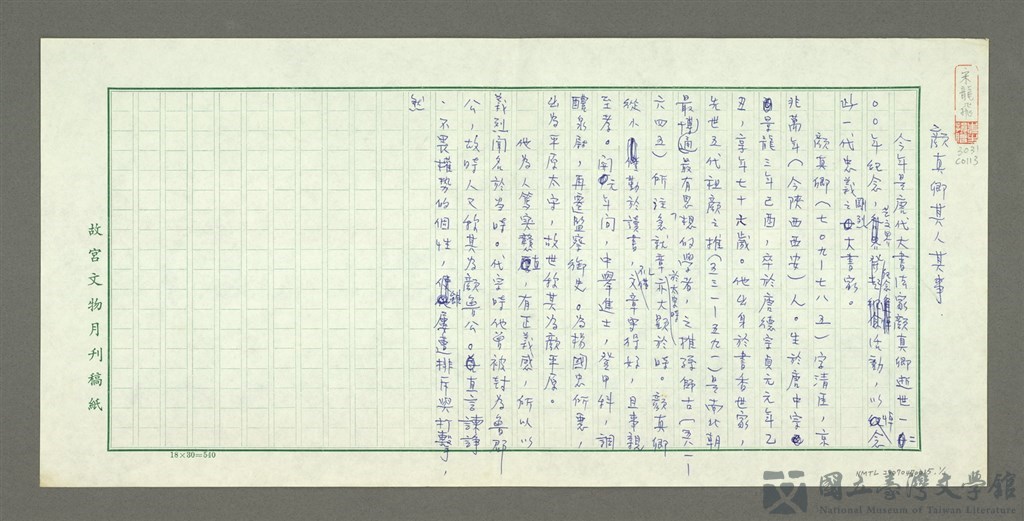 顏真卿其人其事
今年是唐代大書法家顏真卿逝世一二
〇〇年紀念，藝文界紀念活動，以悼念
此一代忠義剛烈之大書家。
顏真卿（七〇九—七八五）字清臣，京
兆萬年（今陝西西安）人。生於唐中宗
景龍三年己酉，卒於唐德宗貞元元年乙
丑，享年七十六歲。他出身於書香世家，
先世五代祖顏之推（五三一—五九一）是南北朝
最博通、最有思想的學者，之推孫師古（五八一—
六四五）所注急就章亦大顯於時。顏真卿
從小勤於讀書，不僅文章寫得好，且事親
至孝。開元年間，中舉進士，登甲科，調
醴泉尉，再遷監察御史。為楊國忠所惡，
出為平原太守，故世稱其為顏平原。
他為人篤實戇直，有正義感，所以以
義烈聞名於當時。代宗時他曾被封為魯郡
公，故時人又稱其為顏魯公。直言諫諍
、不畏權勢的個性，屢遭排斥與打擊，
然
故宮文物月刊稿紙
18×30=540
3031
C0113
國立臺灣文學館
National Museum of Taiwan Literature